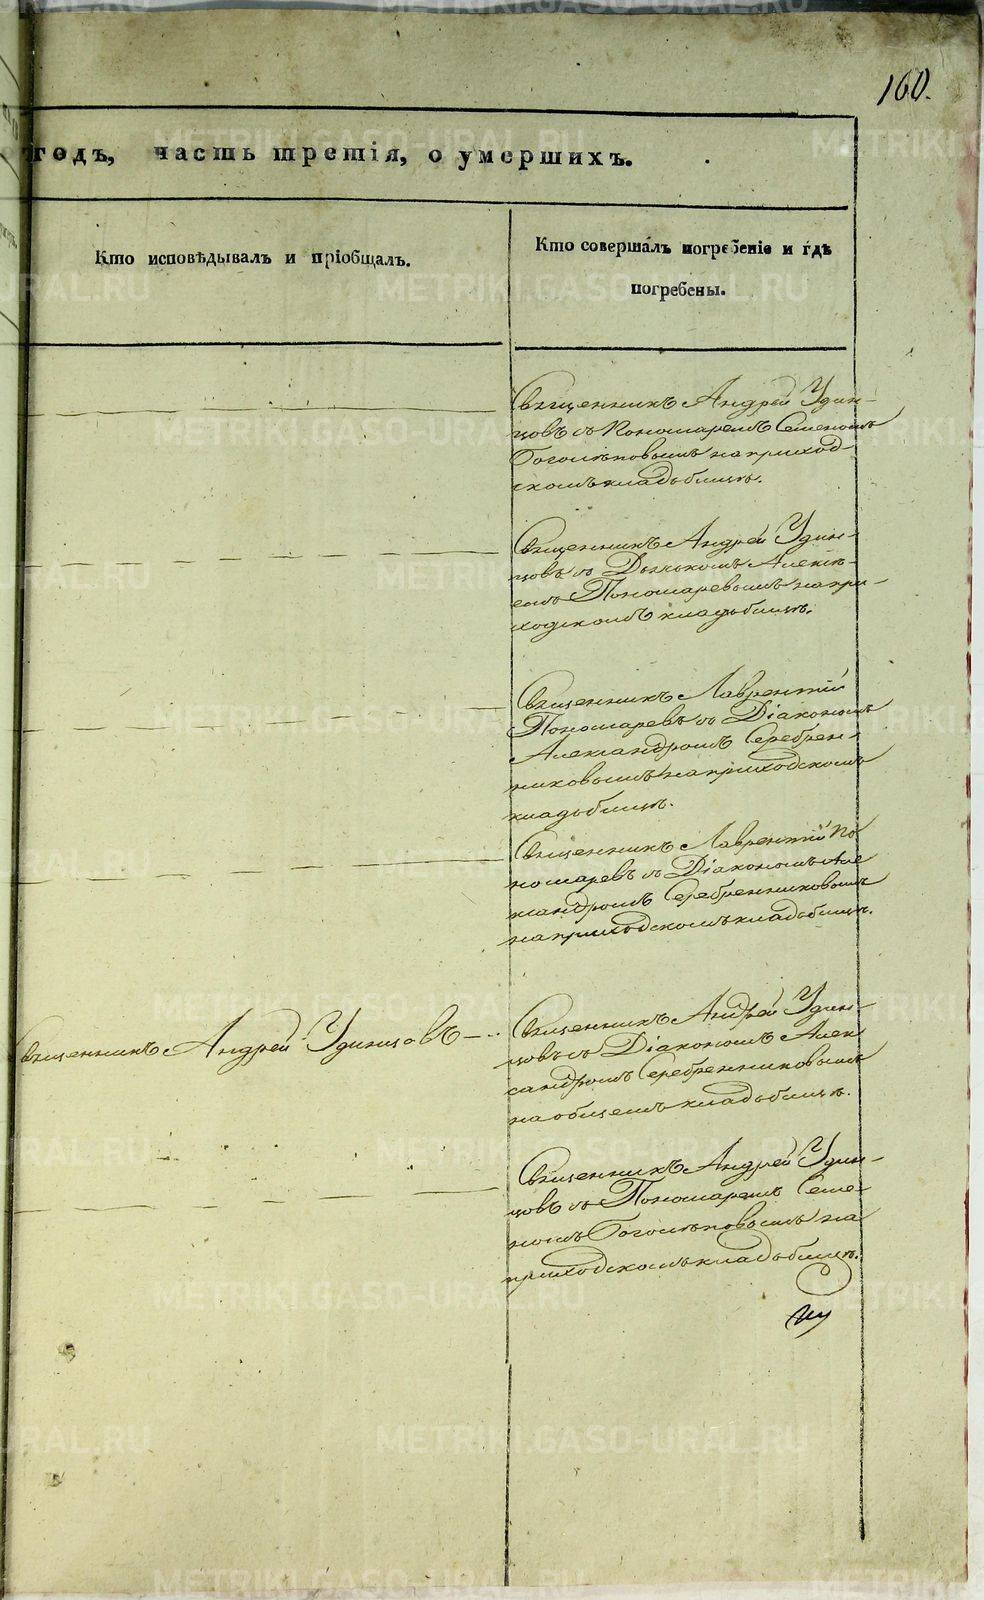 160.
годъ, часть третія, о умершихъ.
Кто исповѣдывалъ и пріобщалъ.
Кто совершалъ погребеніе и гдѣ
погребены.
Священникъ Андрей Удин-
цовъ съ Пономаремъ Семеномъ
Боголѣповымъ на приход-
скомъ кладбищѣ.
Священникъ Андрей Удин-
цовъ съ Дьячкомъ Алексѣ-
емъ Пономаревымъ на при-
ходскомъ кладбищѣ.
Священникъ Лаврентій
Пономаревъ съ Діакономъ
Александромъ Серебрен-
никовымъ на приходскомъ
кладбищѣ.
Священникъ Лаврентій По
номаревъ съ Діакономъ Але
ксандромъ Серебренниковымъ
на приходскомъ кладбищѣ.
Священникъ Андрей Удинцовъ
Священникъ Андрей Удин-
цовъ съ Діакономъ Алек
сандромъ Серебренниковымъ
на общемъ кладбищѣ.
Священникъ Андрей Удин-
цовъ съ Пономаремъ Семе-
номъ Боголѣповымъ на
приходскомъ кладбищѣ.
METRIKI.GASO-URAL.RU